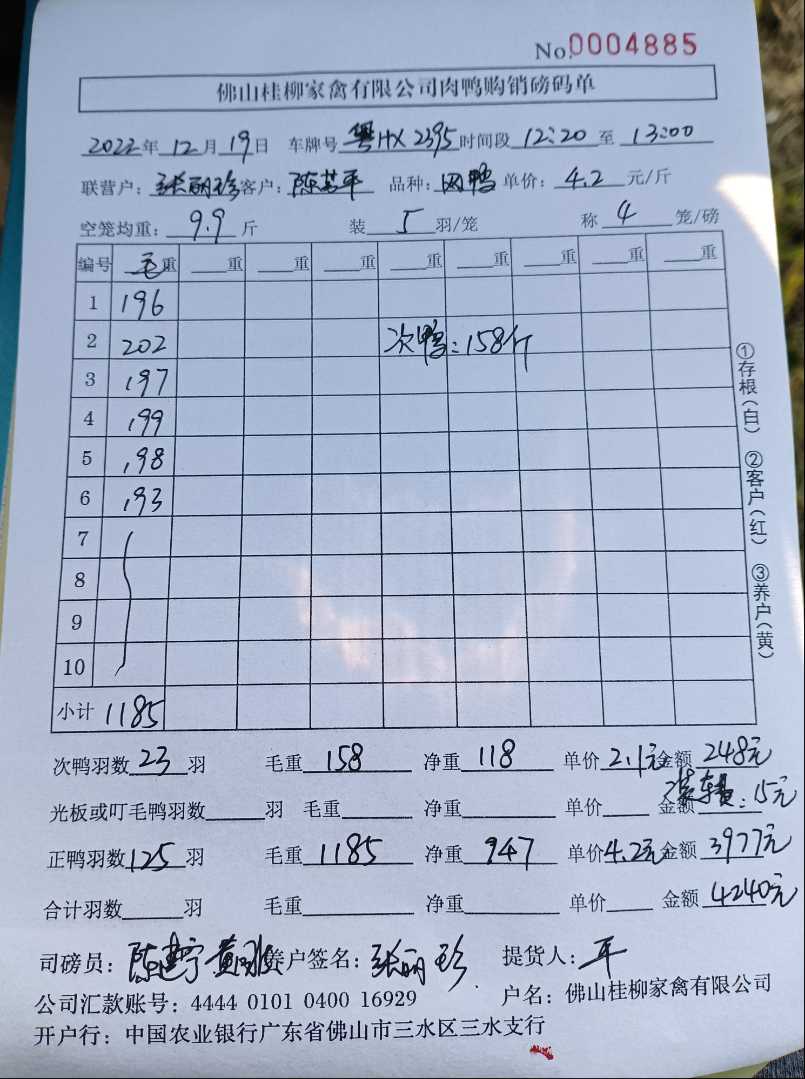 No.0004885
佛山桂柳家禽有限公司肉鸭购销磅码单
2022年12月19日 车牌号粤HX2395时间段12:20至13:00
联营户:张丽珍客户:陈志平 品种:囚鸭 单价:4.2元/斤
空笼均重:9.9斤 装5羽/笼 称4笼/磅
编号 毛重 重 重 重 重 重 重 重 重
1 196
2 202 次鸭:158斤
3 197
4 199
5 198
6 193
7
8
9
10
小计 1185
①存根(白) ②客户(红) ③养户(黄)
次鸭羽数23羽 毛重158 净重118 单价2.1元金额248元
装车费:15元
光板或叮毛鸭羽数 羽 毛重 净重 单价 金额
正鸭羽数125羽 毛重1185 净重947 单价4.2元金额3977元
合计羽数 羽 毛重 净重 单价 金额4240元
司磅员:陈建宁 养户签名:张丽珍 提货人:平
公司汇款账号:4444 0101 0400 16929 户名:佛山桂柳家禽有限公司
开户行:中国农业银行广东省佛山市三水区三水支行